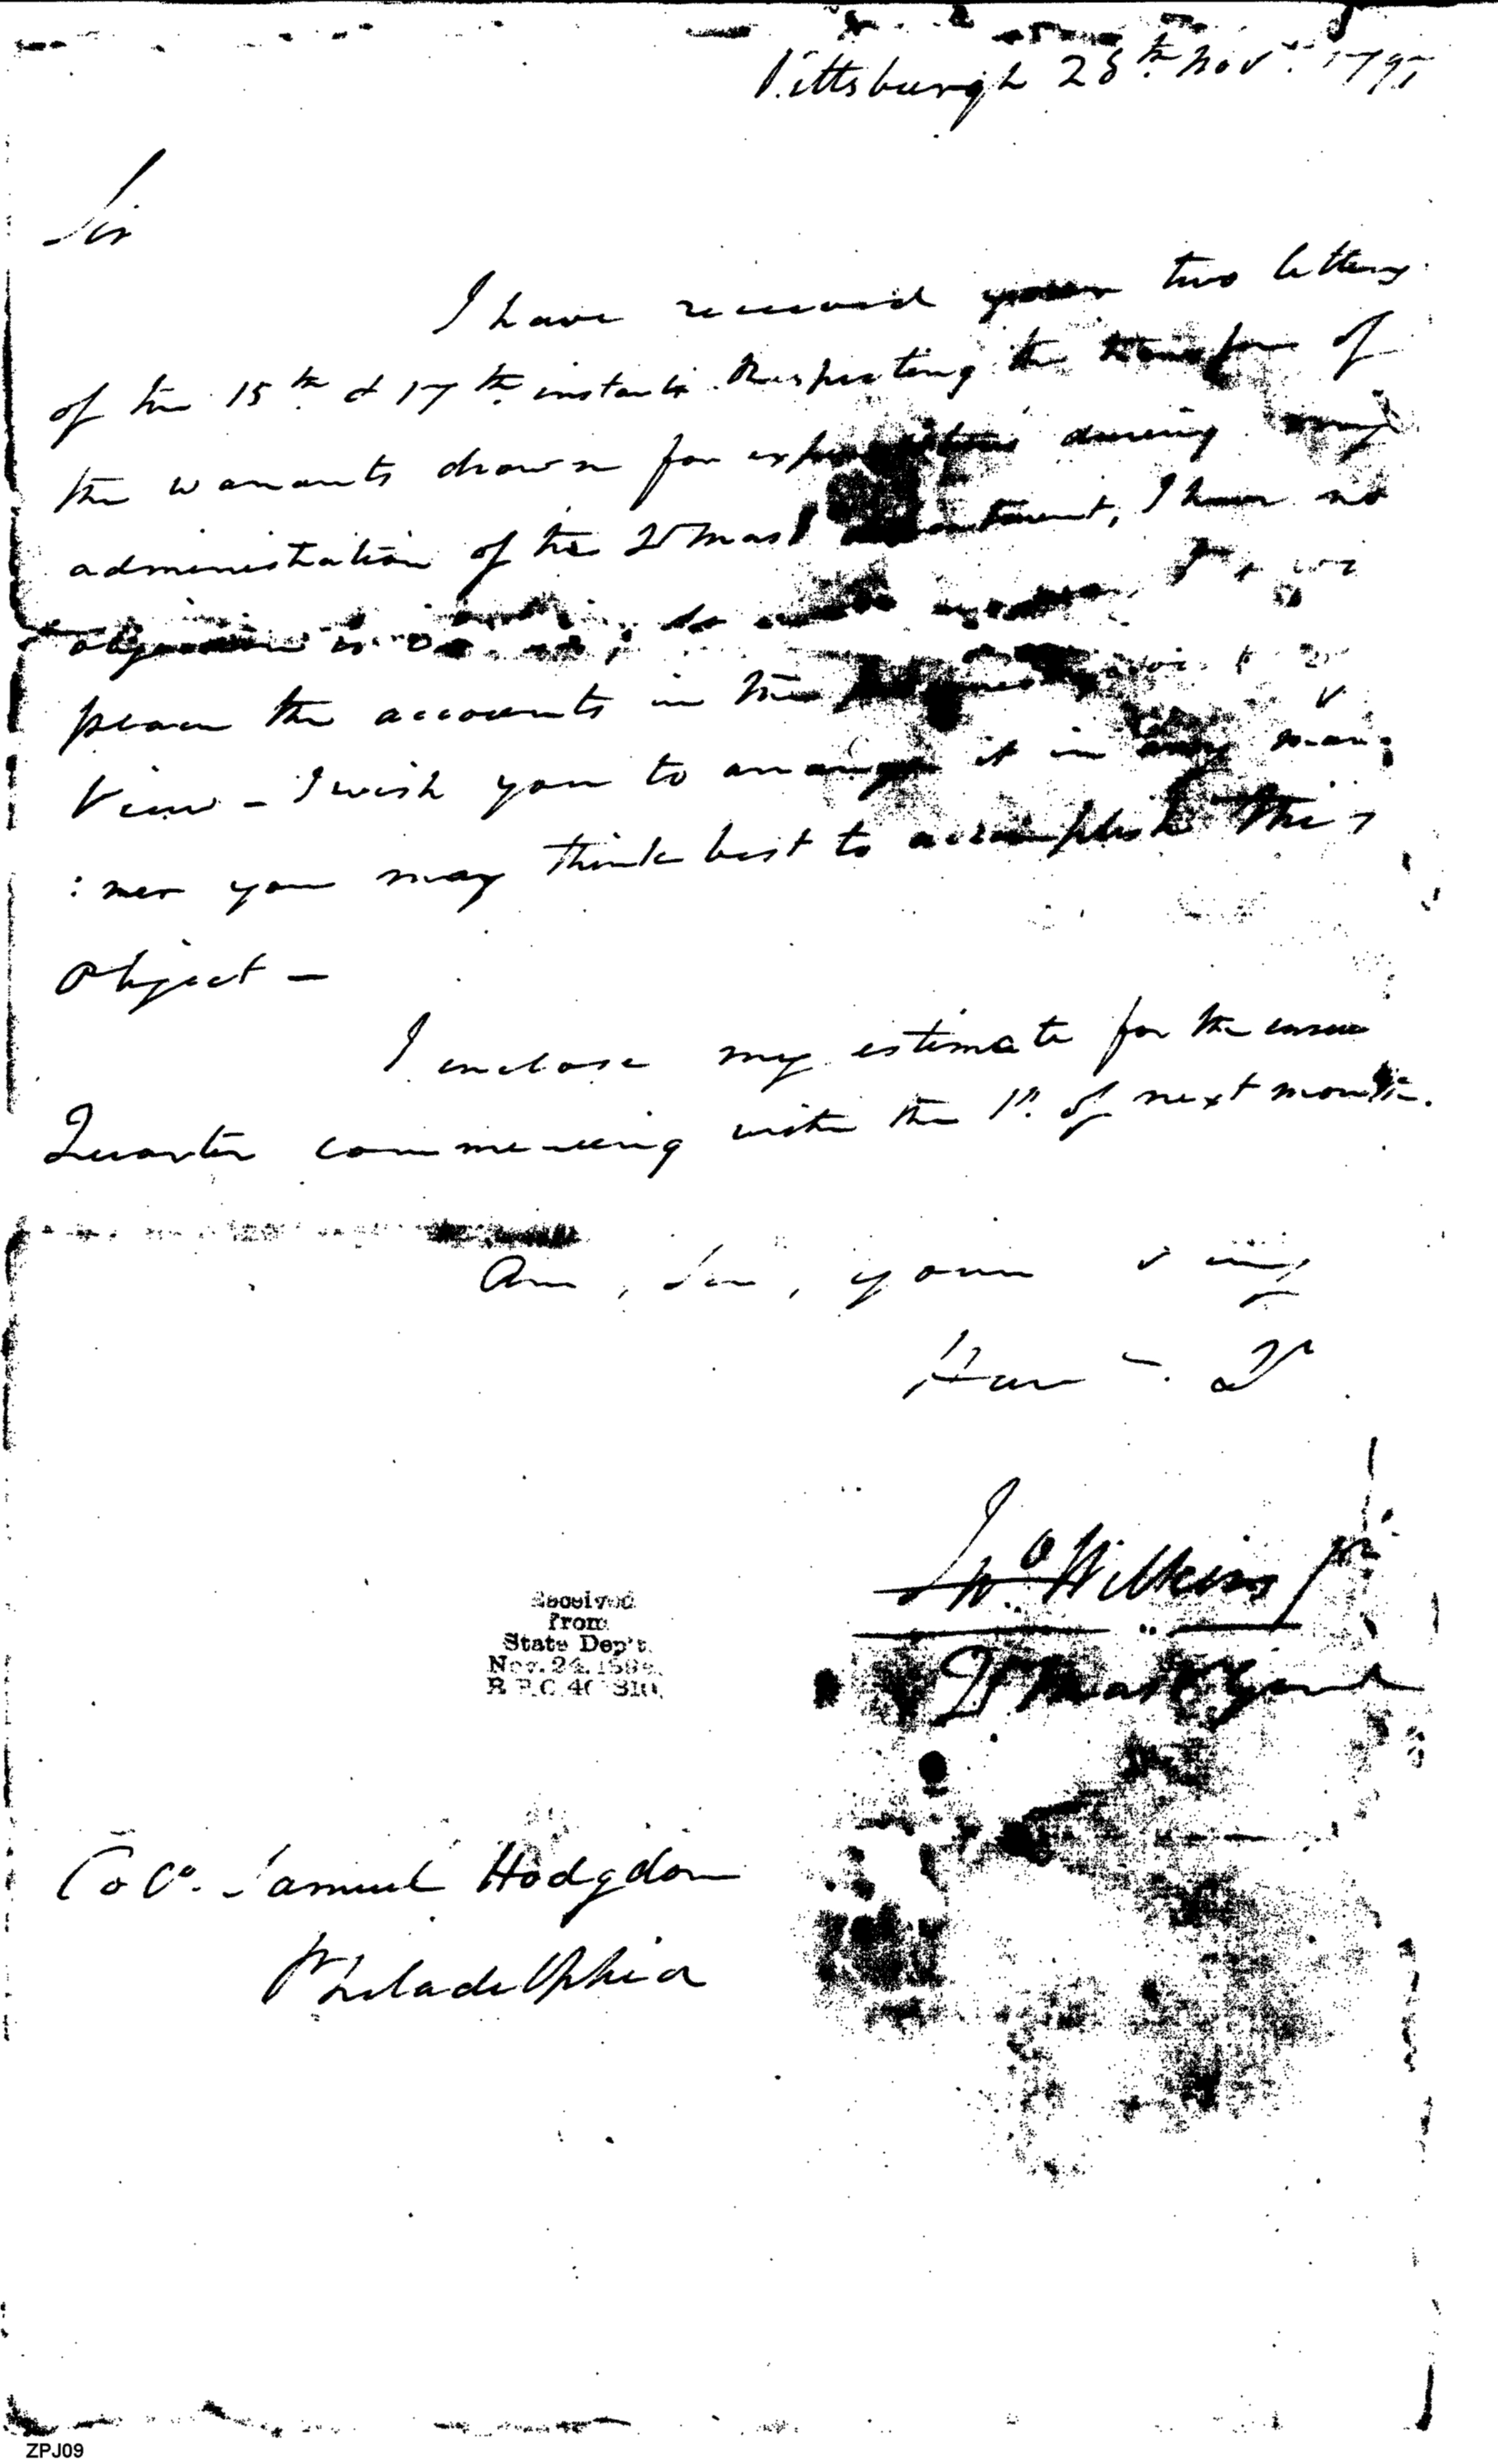 Pittsburgh 28th Novr. 179
Sir
I have received your two letters
of the 15th & 17th instant. Respecting the transfer of
the warrants drawn for expenditures during my
administration of the QrMas department, I have no
objection
place the accounts in the
View – I wish you to arrange it in any man:
:ner you may think best to accomplish this
Object –
I enclose my estimate for the ensue
Quarter commencing with the 1st. of next month.
Am, Sir, your
Hum
Jno Wilkins Jr
Qr Mast Genl
Received
from
State Dep't.
Nov. 24. 189
Col. Samuel Hodgdon
Philadelphia
ZPJ09